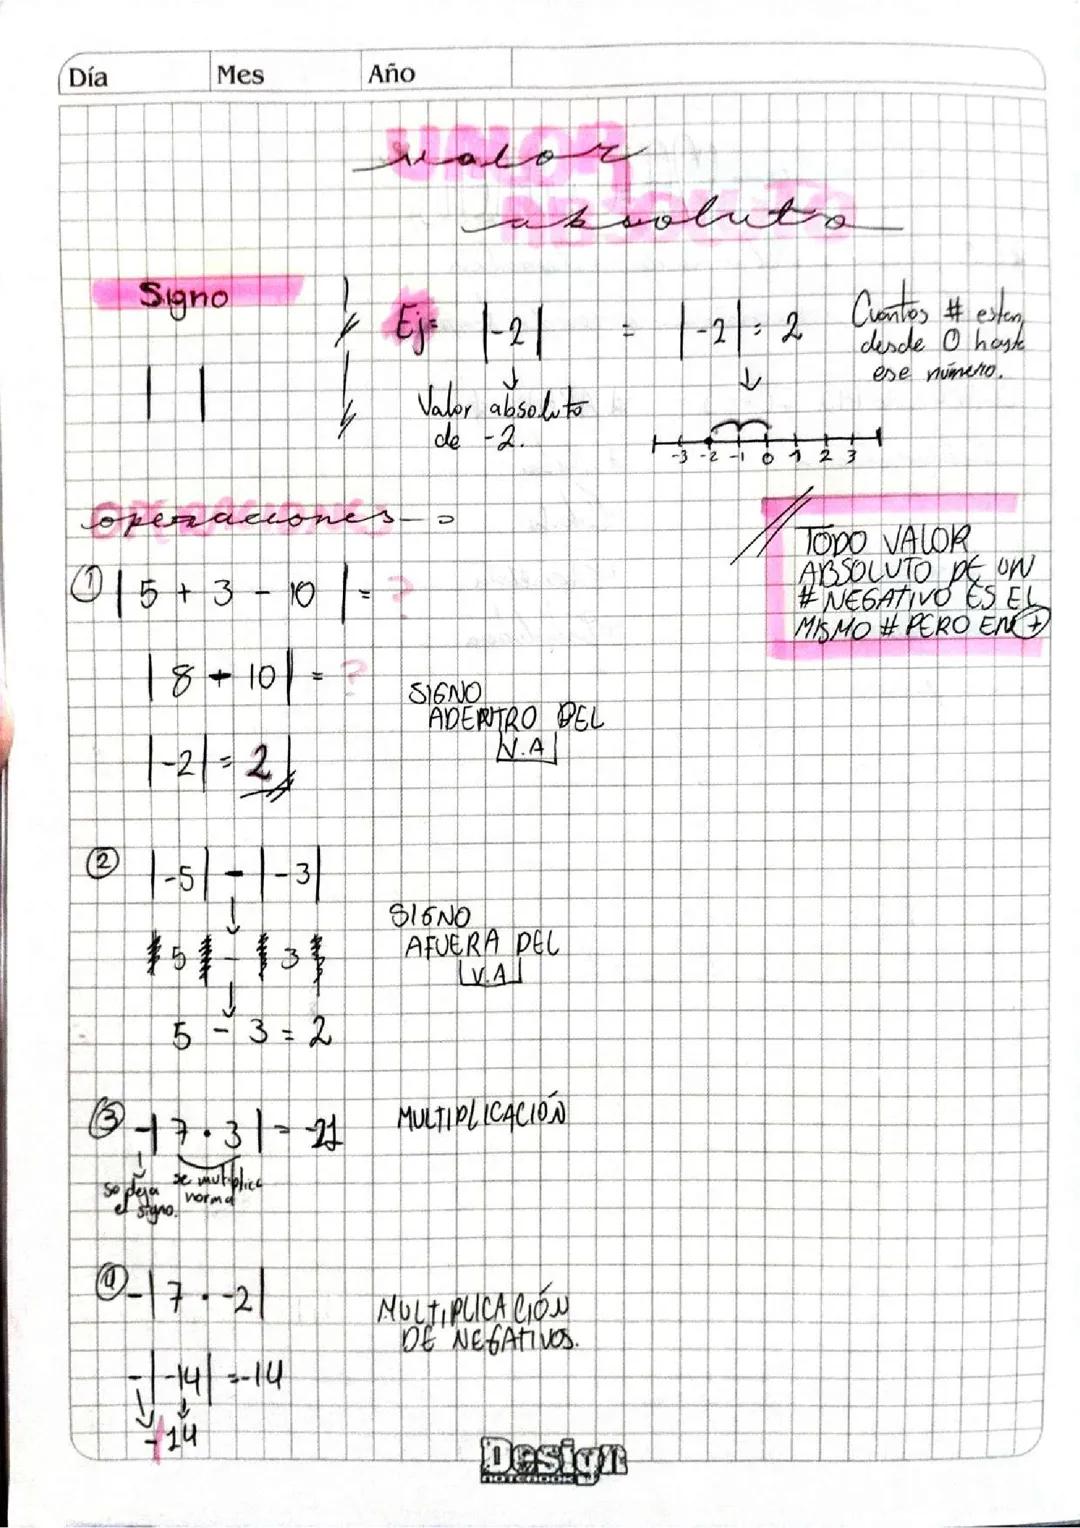 Día Mes Año
valor
absoluto
Signo
| |
Ej= |-2| = |-2| = 2
Cuantos # estan
desde 0 hasta
ese número.
Valor absoluto
de -2.
-3 -2 -1 0 1 2 3
operaciones
TODO VALOR
ABSOLUTO DE UN
# NEGATIVO ES EL
MISMO # PERO EN +
① | 5 + 3 - 10 | = ?
| 8 + 10 | = ?
|-2| = 2
SIGNO
ADENTRO DEL
|V.A|
② |-5| - |-3|
|5| - |3|
5 - 3 = 2
SIGNO
AFUERA DEL
|V.A|
③ -|7 · 3| = -21
MULTIPLICACIÓN
se deja
el signo.
se multiplica
normal
④ -|7 · -2|
MULTIPLICACIÓN
DE NEGATIVOS.
-|-14| = -14
-14
Design
NOTEBOOK